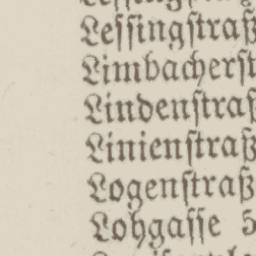 Leſſingſtraß
Limbacherſt
Lindenſtraß
Linienſtraß
Logenſtraß
Lohgaſſe 5